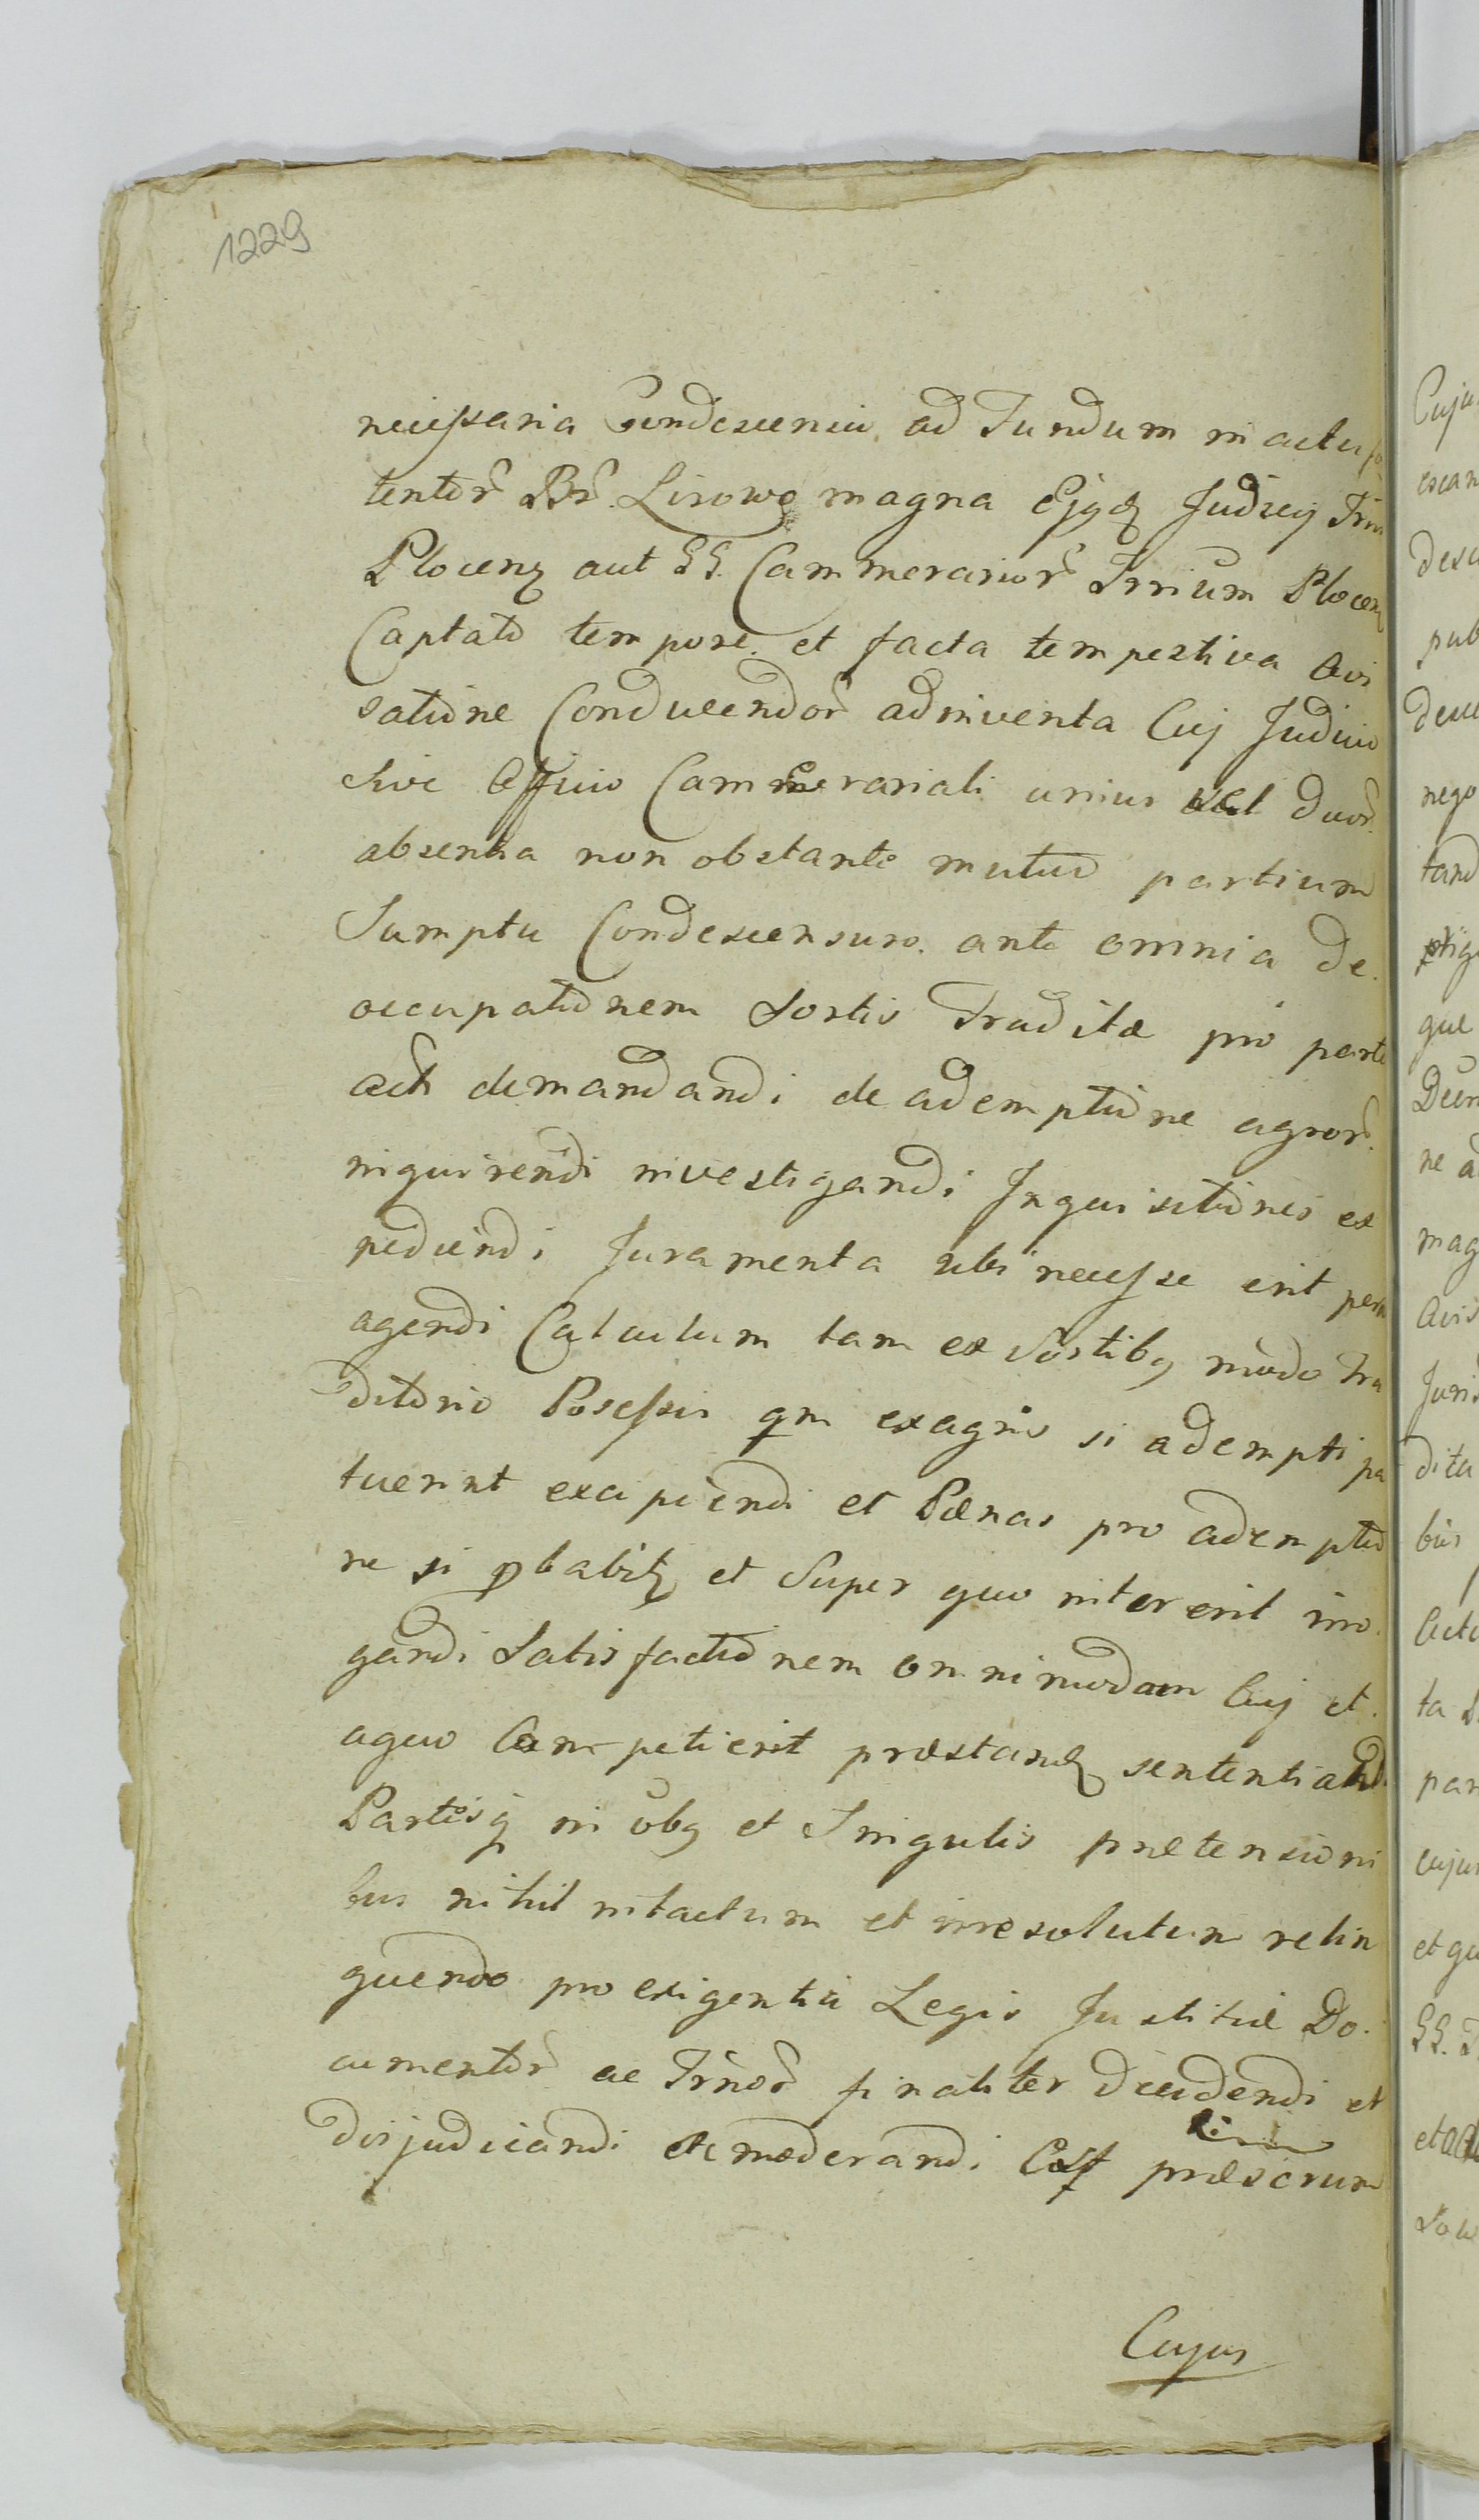 1229
necessaria Condescensio ad Fundum in actu
tentor Br. Lisowo magna Ejqz Judicy Trm
Plocens aut GG. Cammerarior Trrium Plocen
Captato tempore et facta tempestiva avi
satione Conducendor adinventa Cuj Judicio
sive Officio Cammerariali unius vel duor.
absentia non obstante mutuo partium
Sumptu Condescensuro. ante omnia de.
occupationem Sortis Traditæ pro parte
demandandi de ademptione agror.
inquirendi investigandi Inquisitiones ex
pediendi Juramenta ubi necesse erit per
agendi Calculum tam ex Sortibq modo Tra
ditorio Posessis qm ex agris si adempti
fuerint excipiendi et Pænas pro adempto
ne si et Super quo inter erit irro.
gandi Satisfactionem omnimodam Cuj et.
a quo Competierit præstand sententiandi
Partesq in obq et Singulis prætensioni
bus nihil intactum et irresolutum relin
quendo pro exigentia Legis Justitiæ Do.
cumentor ac Trnor finaliter decidendi et
disjudicandi et moderandi
Cujus
Cuju
escan
desc
pub
nego
tand
que
ne a
mag
avis
Juris
dita
bus
acto
ta
par
cujus
et qu
GG. T